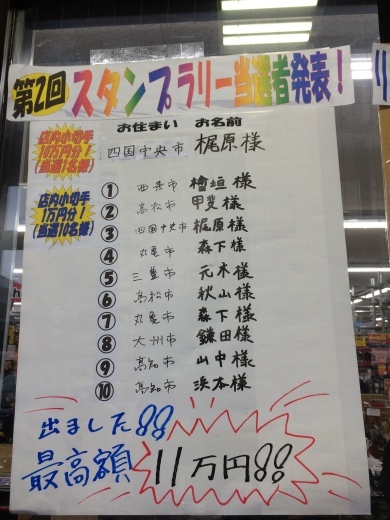 第2回 スタンプラリー当選者発表！
お住まい お名前
店内小切手
10万円分！
(当選1名様)
四国中央市 梶原様
店内小切手
1万円分！
(当選10名様)
① 西条市 檜垣様
② 高松市 甲斐様
③ 四国中央市 梶原様
④ 丸亀市 森下様
⑤ 三豊市 元木様
⑥ 高松市 秋山様
⑦ 丸亀市 森下様
⑧ 大州市 鎌田様
⑨ 高知市 山中様
⑩ 高知市 浜本様
出ました!!
最高額 11万円!!